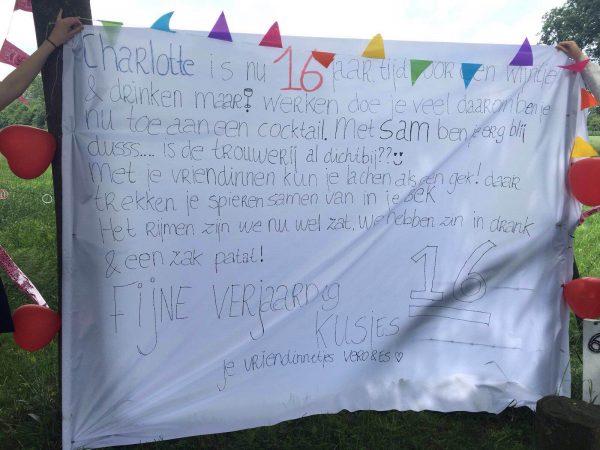 Charlotte is nu 16 jaar tijd voor een wijntje
& drinken maar! werken doe je veel daarom ben je
nu toe aan een cocktail. Met SAM ben je erg blij
dusss.... is de trouwerij al dichtbij??
Met je vriendinnen kun je lachen als een gek! daar
trekken je spieren samen van in je bek
Het rijmen zijn we nu wel zat. We hebben zin in drank
& een zak patat!
16
Fijne verjaardag
Kusjes
je vriendinnetjes